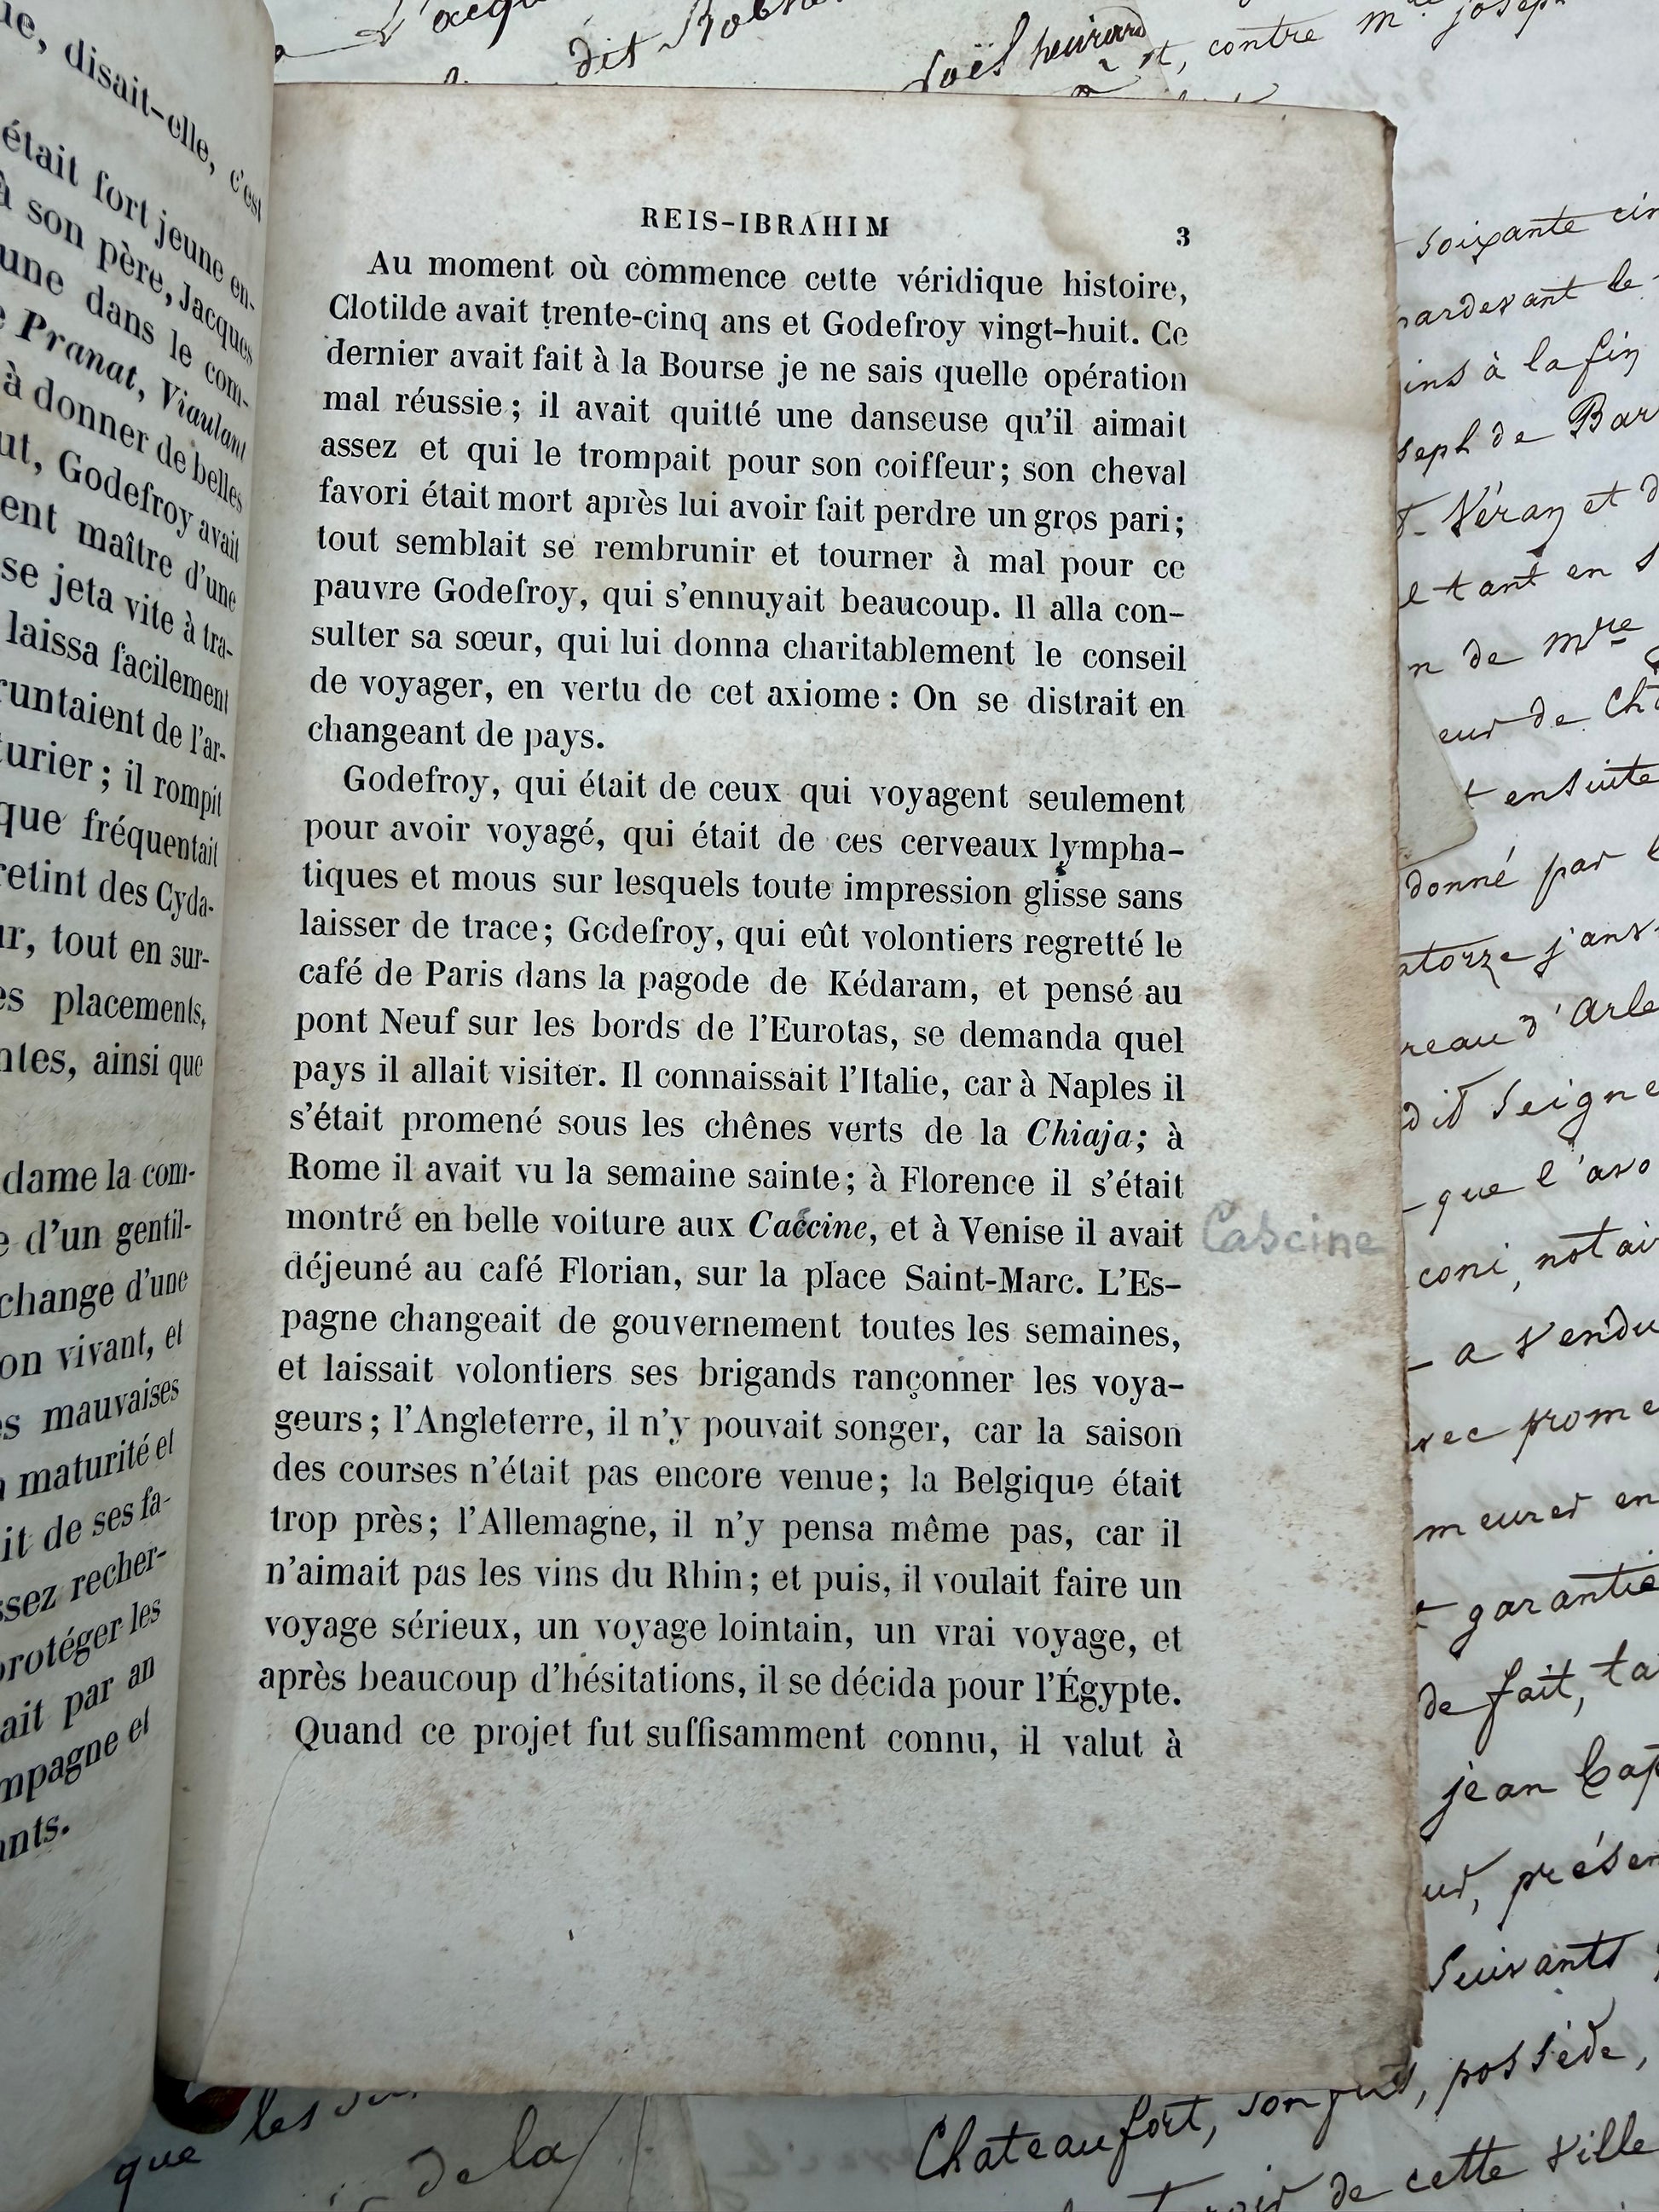 ue, disait-elle, c'est
était fort jeune en-
à son père, Jacques
une dans le com-
Pranat, Viaulant
à donner de belles
ut, Godefroy avait
ent maître d'une
se jeta vite à tra-
laissa facilement
runtaient de l'ar-
turier ; il rompit
que fréquentait
retint des Cyda-
ur, tout en sur-
es placements,
ntes, ainsi que
dame la com-
e d'un gentil-
change d'une
on vivant, et
es mauvaises
maturité et
it de ses fa-
ssez recher-
protéger les
ait par an
mpagne et
ants.
REIS-IBRAHIM 3
Au moment où commence cette véridique histoire,
Clotilde avait trente-cinq ans et Godefroy vingt-huit. Ce
dernier avait fait à la Bourse je ne sais quelle opération
mal réussie ; il avait quitté une danseuse qu'il aimait
assez et qui le trompait pour son coiffeur ; son cheval
favori était mort après lui avoir fait perdre un gros pari ;
tout semblait se rembrunir et tourner à mal pour ce
pauvre Godefroy, qui s'ennuyait beaucoup. Il alla con-
sulter sa sœur, qui lui donna charitablement le conseil
de voyager, en vertu de cet axiome : On se distrait en
changeant de pays.
Godefroy, qui était de ceux qui voyagent seulement
pour avoir voyagé, qui était de ces cerveaux lympha-
tiques et mous sur lesquels toute impression glisse sans
laisser de trace ; Godefroy, qui eût volontiers regretté le
café de Paris dans la pagode de Kédaram, et pensé au
pont Neuf sur les bords de l'Eurotas, se demanda quel
pays il allait visiter. Il connaissait l'Italie, car à Naples il
s'était promené sous les chênes verts de la Chiaja ; à
Rome il avait vu la semaine sainte ; à Florence il s'était
montré en belle voiture aux Caccine, et à Venise il avait
Cascine
déjeuné au café Florian, sur la place Saint-Marc. L'Es-
pagne changeait de gouvernement toutes les semaines,
et laissait volontiers ses brigands rançonner les voya-
geurs ; l'Angleterre, il n'y pouvait songer, car la saison
des courses n'était pas encore venue ; la Belgique était
trop près ; l'Allemagne, il n'y pensa même pas, car il
n'aimait pas les vins du Rhin ; et puis, il voulait faire un
voyage sérieux, un voyage lointain, un vrai voyage, et
après beaucoup d'hésitations, il se décida pour l'Égypte.
Quand ce projet fut suffisamment connu, il valut à
dit
contre mre joseph
soixante cin
pardevant le
ins à la fin
seph de Bar
Véran et d
etant en
n de mre
eur de
t ensuite
donné par
atorze janv
reau d'Arle
dit Seigne
que l'avo
coni, notair
a vendu
vec prome
meurer en
garantie
de fait, ta
jean Cap
présen
suivants
possede,
Chateaufort,
de cette ville
que les
de la